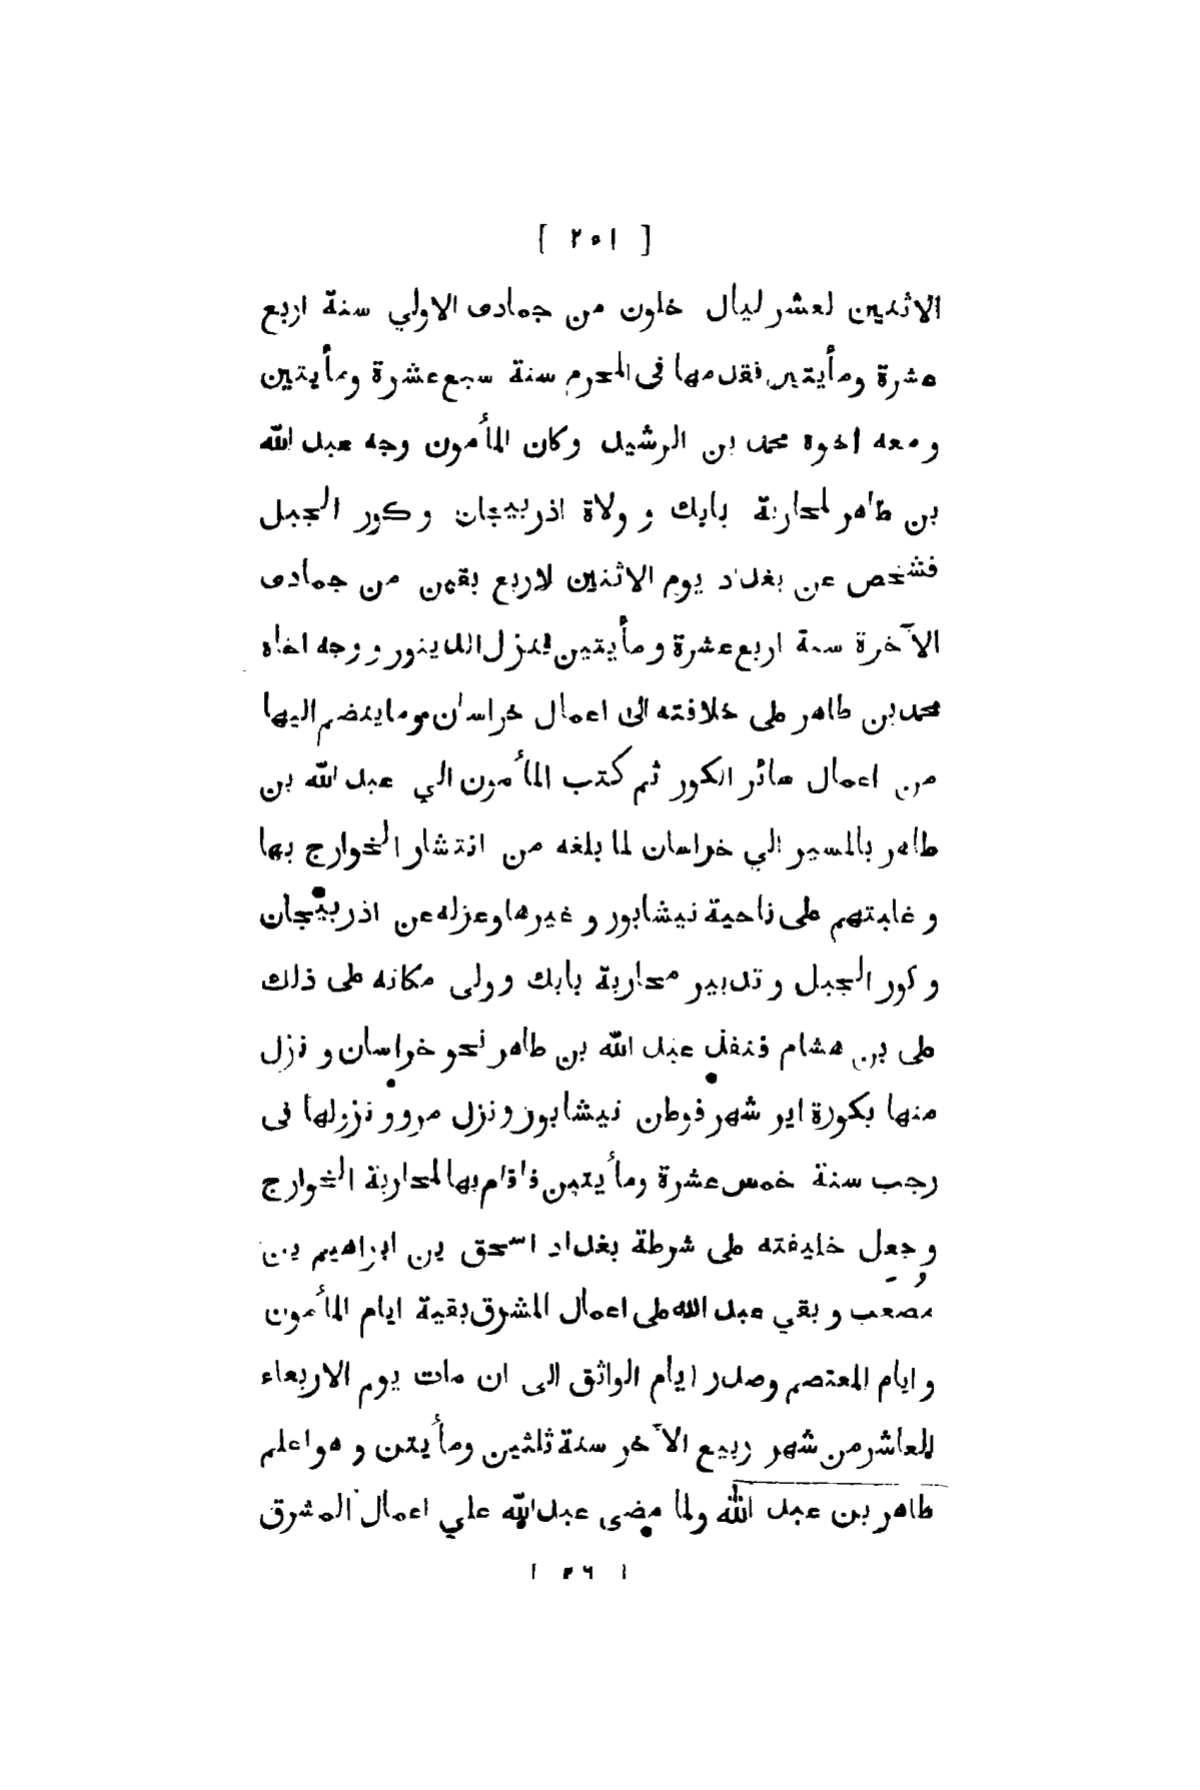 [ ٢٠١ ]
الاثنين لعشر ليال خلون من جمادى الاولي سنة اربع
عشرة ومأيتين فقدمها فى المحرم سنة سبع عشرة ومأيتين
و معه اخوة محمد بن الرشيد وكان المأمون وجه عبد الله
بن طاهر لمحاربة بابك و ولاة اذربيجان و كور الجبل
فشخص عن بغداد يوم الاثنين لاربع بقين من جمادى
الآخرة سنة اربع عشرة و مأيتين فنزل الدينور و وجه اخاه
محمد بن طاهر على خلافته الى اعمال خراسان وما ينضم اليها
من اعمال سائر الكور ثم كتب المأمون الي عبد الله بن
طاهر بالمسير الي خراسان لما بلغه من انتشار الخوارج بها
و غلبتهم على ناحية نيشابور و غيرها وعزله عن اذربيجان
و كور الجبل و تدبير محاربة بابك و ولى مكانه على ذلك
على بن هشام فنفذ عبد الله بن طاهر نحو خراسان و نزل
منها بكورة ابر شهر فوطن نيشابور و نزل مرو و نزولها فى
رجب سنة خمس عشرة ومأيتين فاقام بها لمحاربة الخوارج
و جعل خليفته على شرطة بغداد اسحق بن ابراهيم بن
مُصعب و بقي عبد الله على اعمال المشرق بقية ايام المأمون
و ايام المعتصم وصدر ايام الواثق الى ان مات يوم الاربعاء
للعاشر من شهر ربيع الآخر سنة ثلثين ومأيتن و هو اعلم
طاهر بن عبد الله ولما مضى عبد الله علي اعمال المشرق
[ ٢٦ ]